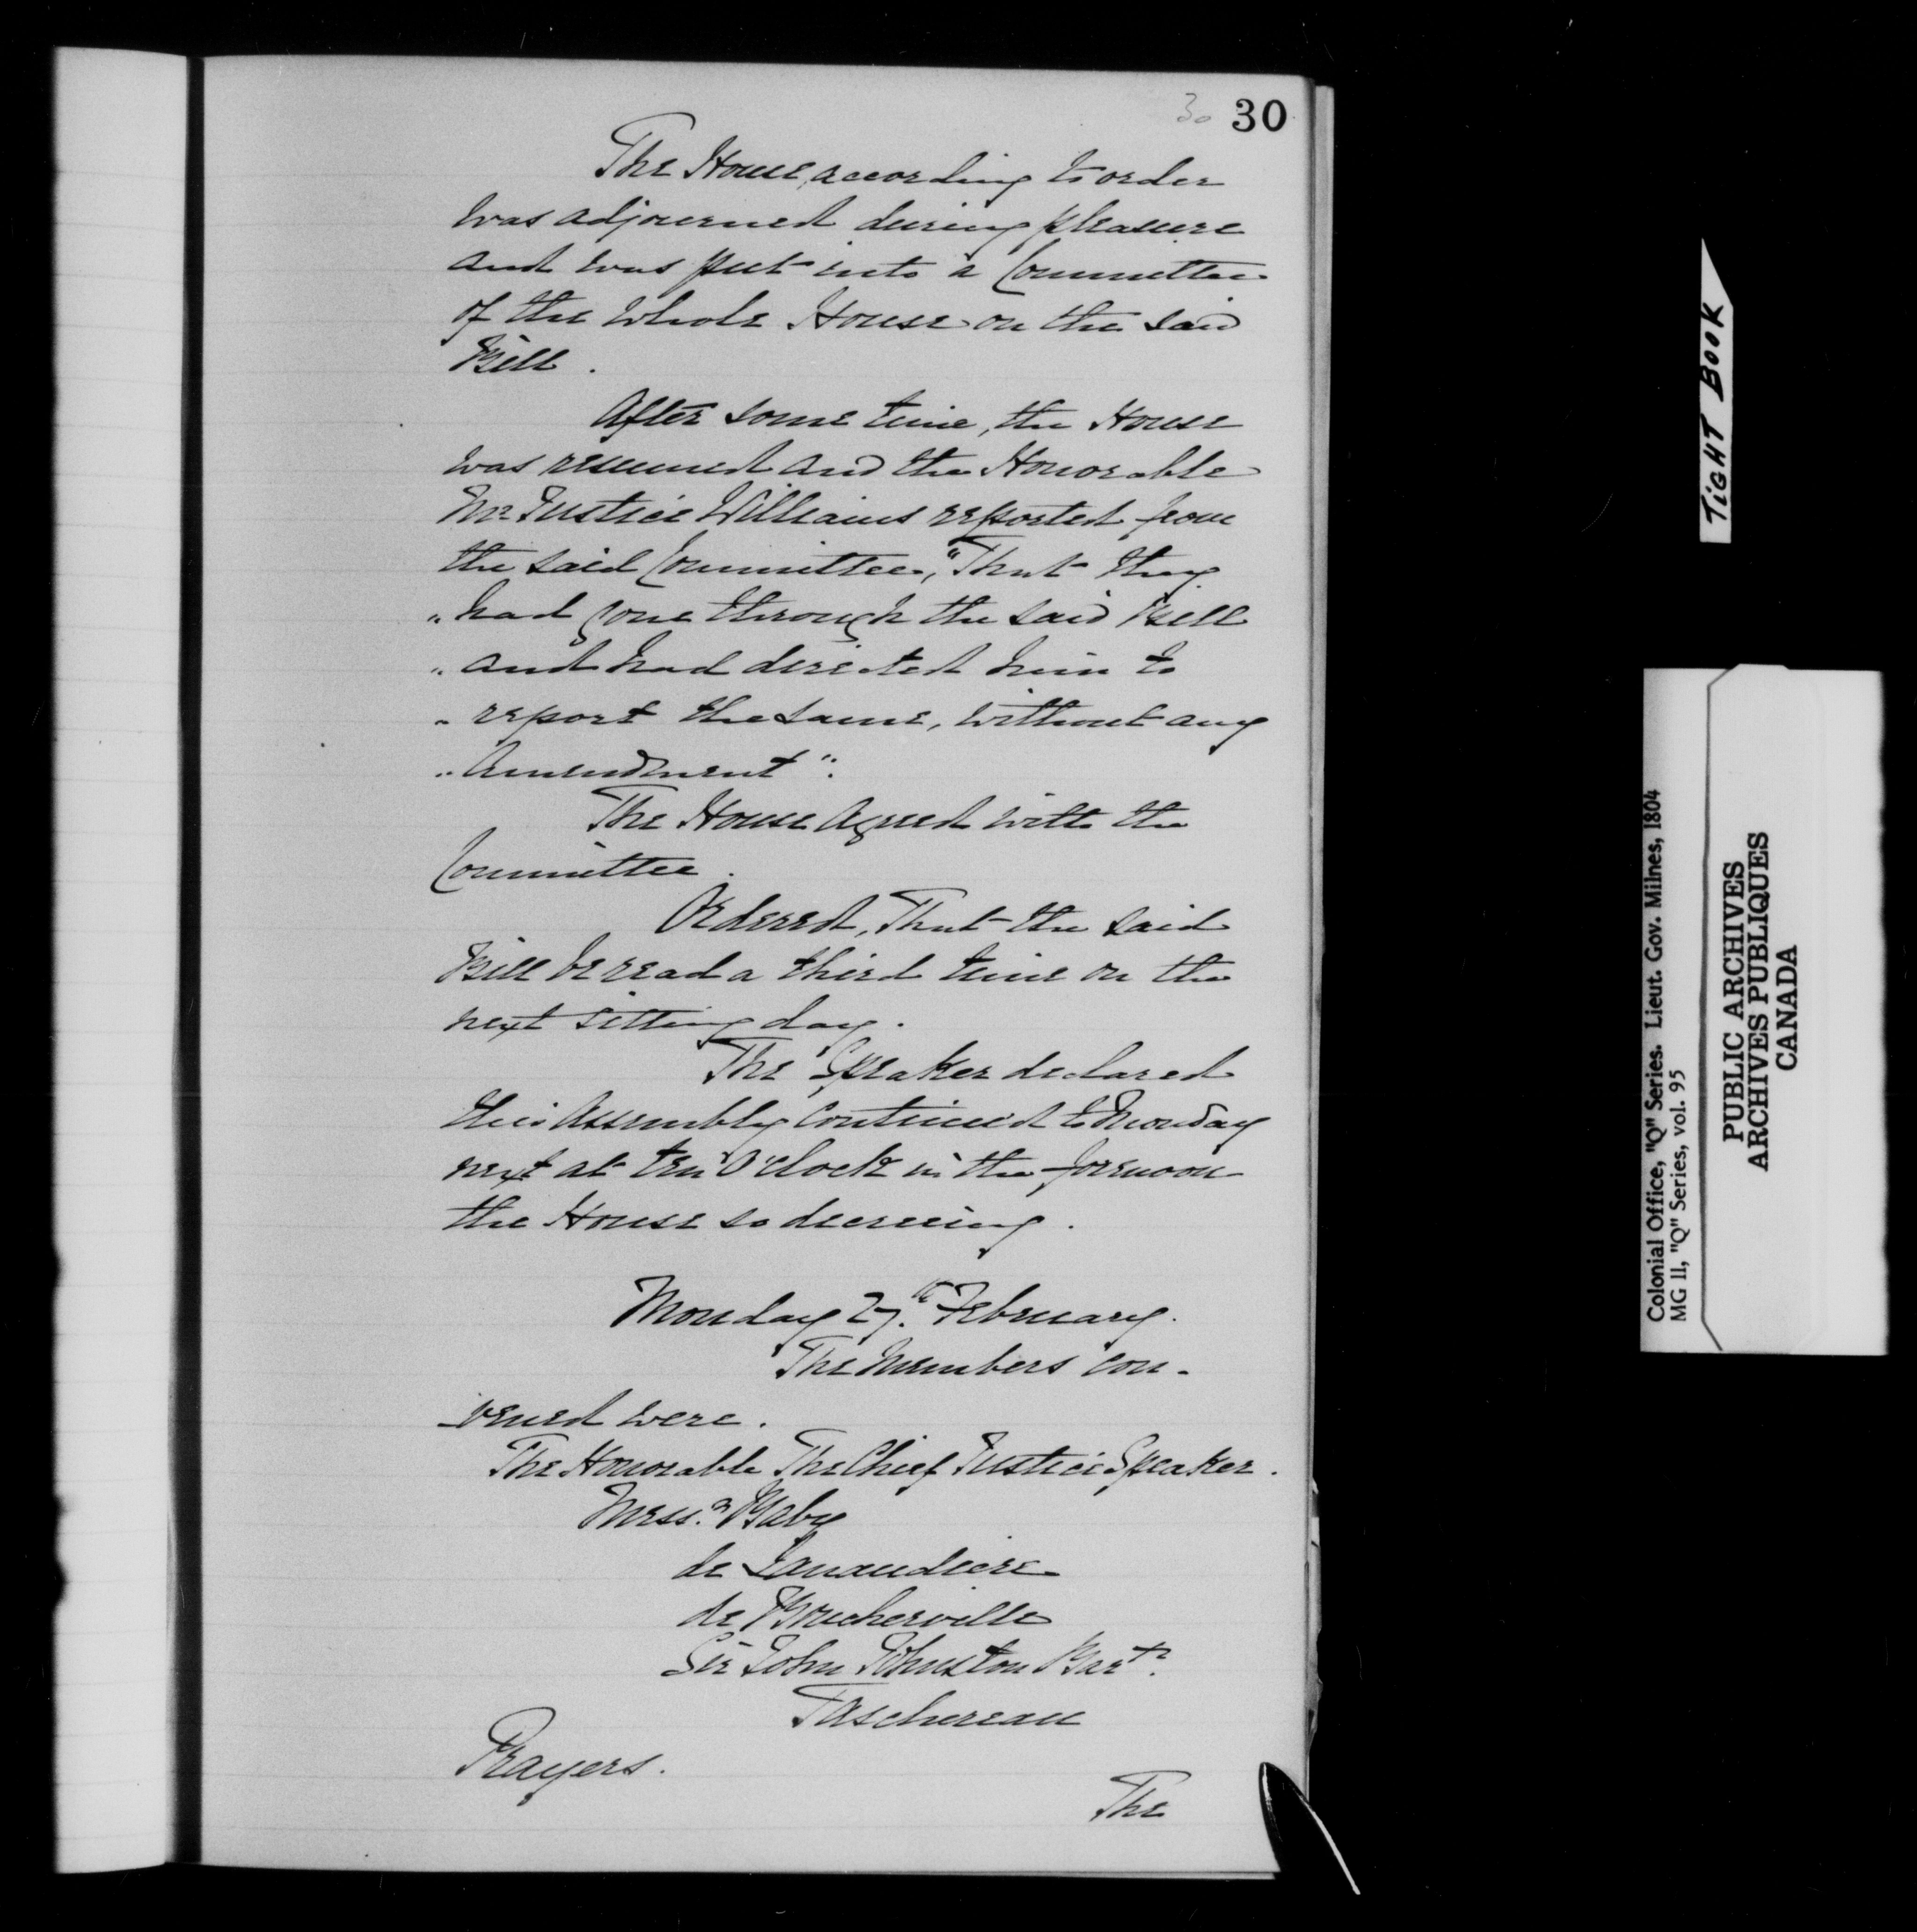 30 30
The House, according to order
was adjourned during pleasure
and was put into a Committee
of the whole House on the said
Bill.
After some time, the House
was resumed and the Honorable
Mr Justice Williams reported from
the said Committee, "That they
" had gone through the said Bill
" and had directed him to
" report the same, without any
" Amendment".
The House Agreed with the
Committee.
Ordered, That the said
Bill be read a third time on the
next sitting day.
The Speaker declared
this Assembly Continued to Monday
next at ten O'clock in the forenoon
the House so decreeing.
Monday 27.th February.
The Members con-
-vened were.
The Honorable The Chief Justice Speaker.
Mess.rs Baby
de Lanaudiere
de Boucherville
Sir John Johnston Bart.
Taschereau
Prayers.
The
TIGHT BOOK
Colonial Office, "Q" Series. Lieut. Gov. Milnes, 1804
MG 11, "Q" Series, vol. 95
PUBLIC ARCHIVES
ARCHIVES PUBLIQUES
CANADA